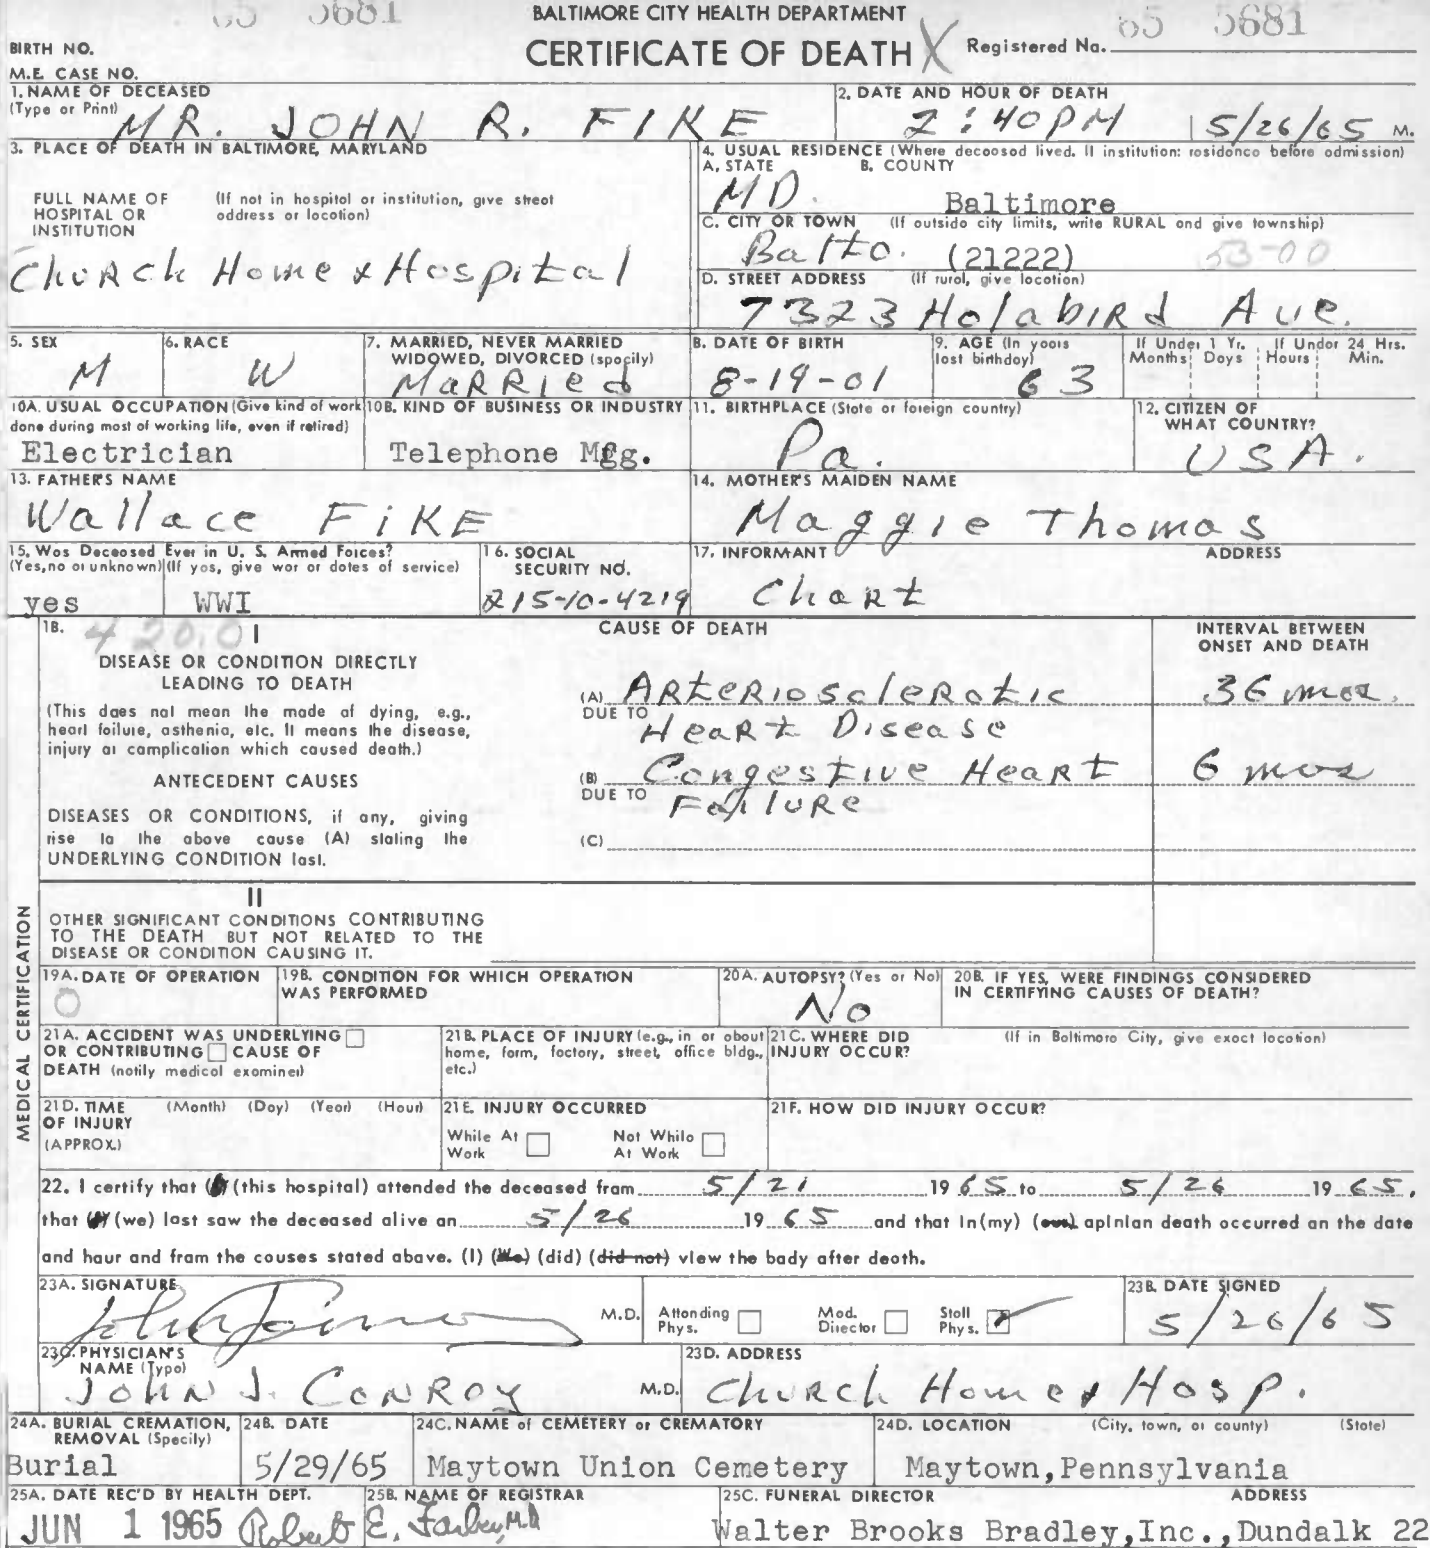 65 5681
BALTIMORE CITY HEALTH DEPARTMENT
65 5681
BIRTH NO.
CERTIFICATE OF DEATH X
Registered No.
M.E. CASE NO.
1. NAME OF DECEASED
(Type or Print)
MR. JOHN R. FIKE
2. DATE AND HOUR OF DEATH
2:40 PM 5/26/65 M.
3. PLACE OF DEATH IN BALTIMORE, MARYLAND
FULL NAME OF HOSPITAL OR INSTITUTION
(If not in hospital or institution, give street address or location)
Church Home & Hospital
4. USUAL RESIDENCE (Where deceased lived. If institution: residence before admission)
A. STATE B. COUNTY
MD. Baltimore
C. CITY OR TOWN (If outside city limits, write RURAL and give township)
Balto. (21222) 53-00
D. STREET ADDRESS (If rural, give location)
7323 Holabird Ave.
5. SEX
M
6. RACE
W
7. MARRIED, NEVER MARRIED
WIDOWED, DIVORCED (specify)
Married
8. DATE OF BIRTH
8-19-01
9. AGE (In years last birthday)
63
If Under 1 Yr. If Under 24 Hrs.
Months Days Hours Min.
10A. USUAL OCCUPATION (Give kind of work done during most of working life, even if retired)
Electrician
10B. KIND OF BUSINESS OR INDUSTRY
Telephone Mfg.
11. BIRTHPLACE (State or foreign country)
Pa.
12. CITIZEN OF WHAT COUNTRY?
USA.
13. FATHER'S NAME
Wallace FiKE
14. MOTHER'S MAIDEN NAME
Maggie Thomas
15. Was Deceased Ever in U. S. Armed Forces?
(Yes, no or unknown) (If yes, give war or dates of service)
yes WWI
16. SOCIAL SECURITY NO.
215-10-4219
17. INFORMANT ADDRESS
Chart
18. 420.0 I
CAUSE OF DEATH
INTERVAL BETWEEN ONSET AND DEATH
DISEASE OR CONDITION DIRECTLY
LEADING TO DEATH
(This does not mean the mode of dying, e.g.,
heart failure, asthenia, etc. It means the disease,
injury or complication which caused death.)
(A) Arteriosclerotic 36 mos.
DUE TO Heart Disease
ANTECEDENT CAUSES
(B) Congestive Heart 6 mos
DUE TO Failure
DISEASES OR CONDITIONS, if any, giving
rise to the above cause (A) stating the
UNDERLYING CONDITION last.
(C)
II
OTHER SIGNIFICANT CONDITIONS CONTRIBUTING
TO THE DEATH BUT NOT RELATED TO THE
DISEASE OR CONDITION CAUSING IT.
MEDICAL CERTIFICATION
19A. DATE OF OPERATION
0
19B. CONDITION FOR WHICH OPERATION
WAS PERFORMED
20A. AUTOPSY? (Yes or No)
No
20B. IF YES, WERE FINDINGS CONSIDERED
IN CERTIFYING CAUSES OF DEATH?
21A. ACCIDENT WAS UNDERLYING
OR CONTRIBUTING CAUSE OF
DEATH (notify medical examiner)
21B. PLACE OF INJURY (e.g., in or about
home, farm, factory, street, office bldg.,
etc.)
21C. WHERE DID INJURY OCCUR?
(If in Baltimore City, give exact location)
21D. TIME OF INJURY (APPROX.)
(Month) (Day) (Year) (Hour)
21E. INJURY OCCURRED
While At Work Not While At Work
21F. HOW DID INJURY OCCUR?
22. I certify that (I) (this hospital) attended the deceased from 5/21 1965 to 5/26 1965,
that (I) (we) last saw the deceased alive on 5/26 1965 and that in (my) (our) opinion death occurred on the date
and hour and from the causes stated above. (I) (We) (did) (did not) view the body after death.
23A. SIGNATURE
M.D.
Attending Phys. Med. Director Staff Phys.
23B. DATE SIGNED
5/26/65
23C. PHYSICIAN'S NAME (Type)
John J. Conroy M.D.
23D. ADDRESS
Church Home & Hosp.
24A. BURIAL CREMATION, REMOVAL (Specify)
Burial
24B. DATE
5/29/65
24C. NAME of CEMETERY or CREMATORY
Maytown Union Cemetery
24D. LOCATION (City, town, or county) (State)
Maytown, Pennsylvania
25A. DATE REC'D BY HEALTH DEPT.
JUN 1 1965
25B. NAME OF REGISTRAR
Robert E. Farber, M.D.
25C. FUNERAL DIRECTOR ADDRESS
Walter Brooks Bradley, Inc., Dundalk 22